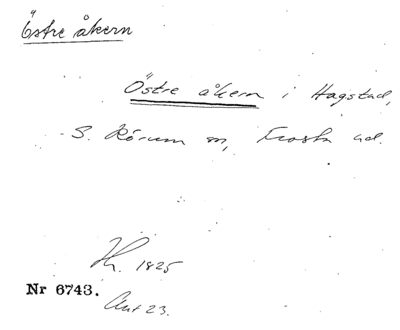 Östre åkern
Östre åkern i Hagstad,
S. Rörum sn, Frosta hd.
1825
Nr 6743.
Akt 23.